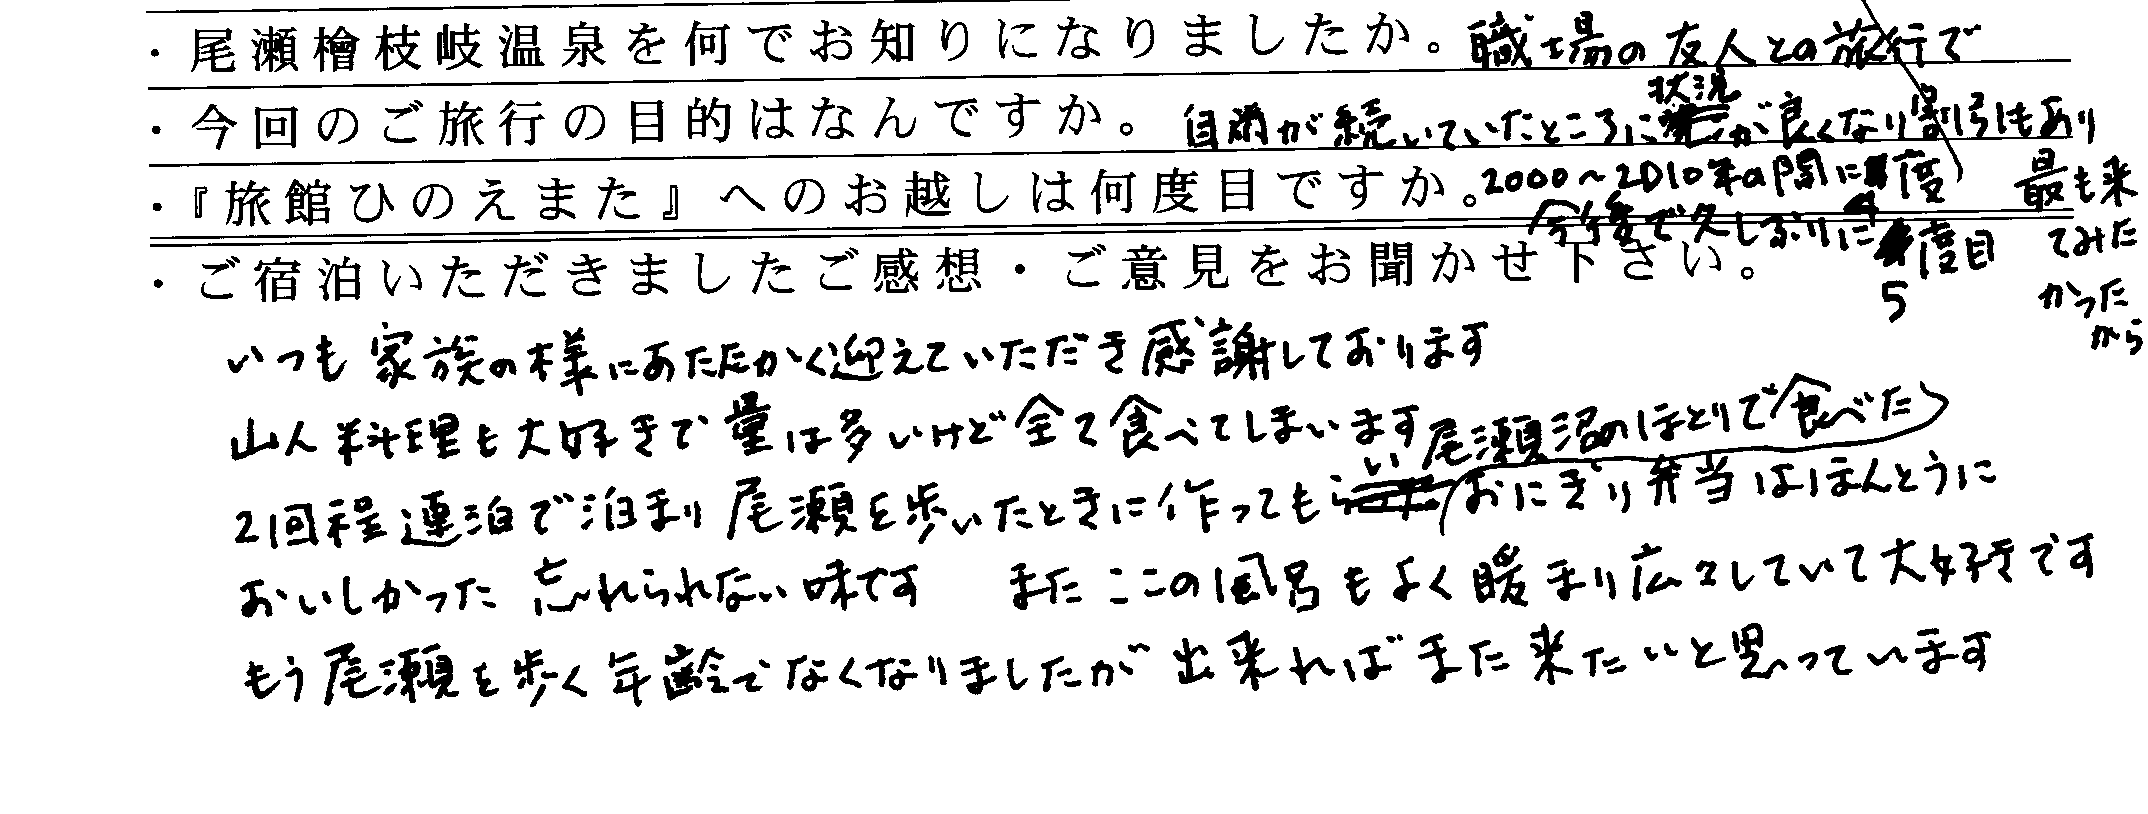 ・尾瀬檜枝岐温泉を何でお知りになりましたか。職場の友人との旅行で
・今回のご旅行の目的はなんですか。自粛が続いていたところに状況が良くなり割引もあり
最も来
てみた
かった
から
・『旅館ひのえまた』へのお越しは何度目ですか。2000～2010年の間に4度
今年度で久しぶりに5度目
・ご宿泊いただきましたご感想・ご意見をお聞かせ下さい。
いつも家族の様にあたたかく迎えていただき感謝しております
山人料理も大好きで量は多いけど全て食べてしまいます
2回程連泊で泊まり尾瀬を歩いたときに作ってもらい尾瀬沼のほとりで食べたおにぎり弁当はほんとうに
おいしかった 忘れられない味です また ここの風呂もよく暖まり広々していて大好きです
もう尾瀬を歩く年齢でなくなりましたが出来ればまた来たいと思っています